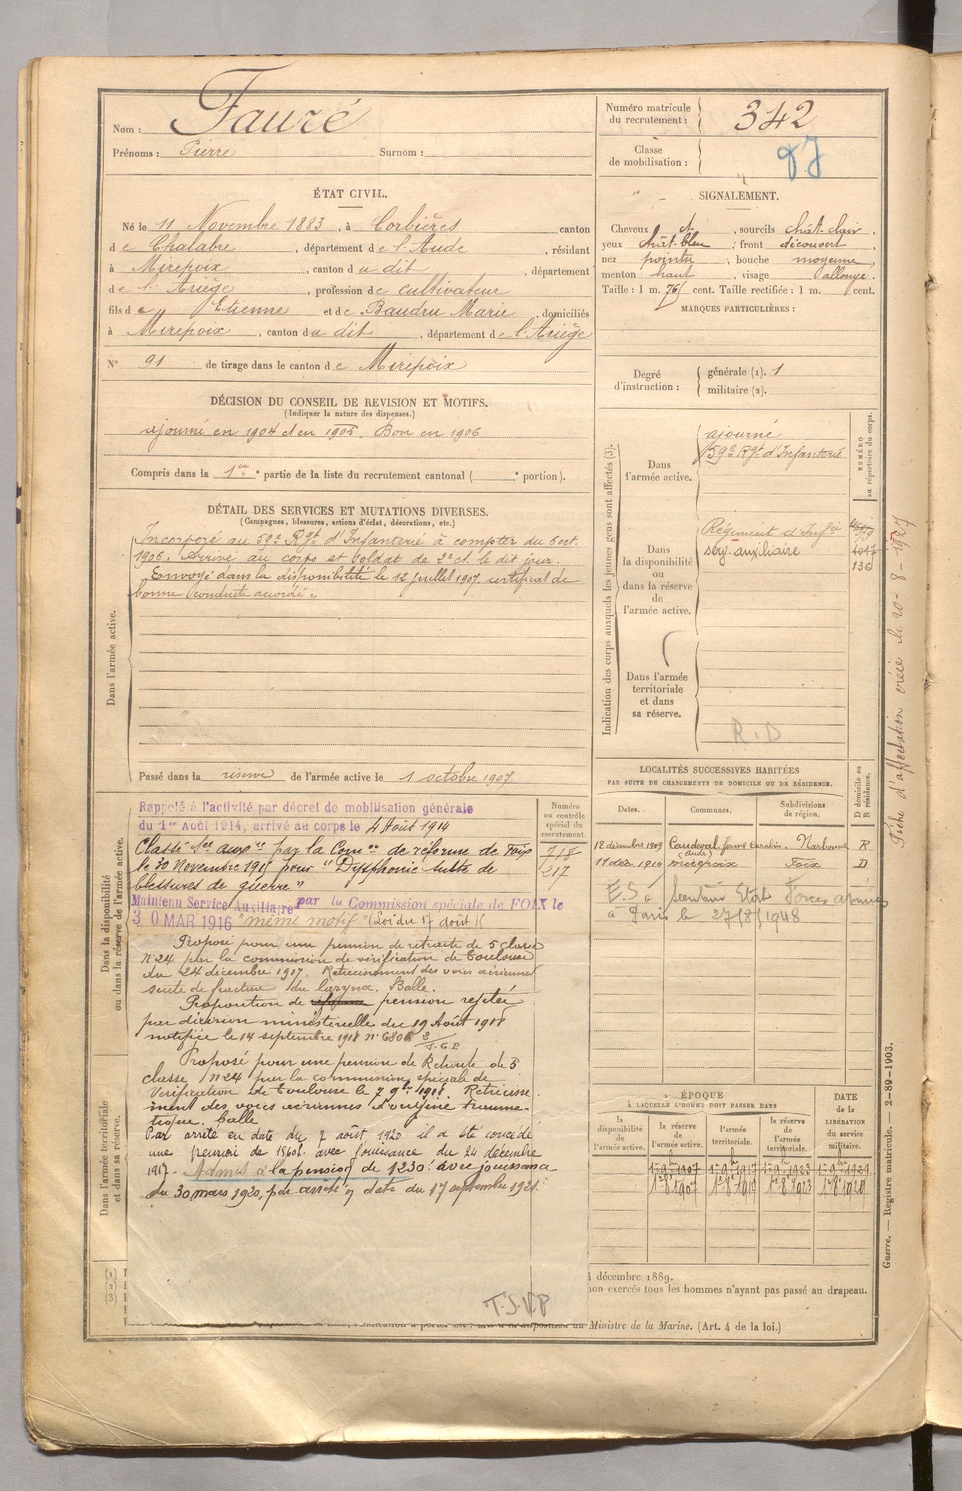 Nom : Fauré
Prénoms : Pierre Surnom :
Numéro matricule du recrutement : 342
Classe de mobilisation :
ÉTAT CIVIL.
Né le 11 Novembre 1883, à Corbières canton
de Chalabre, département de l'Aude, résidant
à Mirepoix, canton du dit, département
de l'Ariège, profession de cultivateur
fils d' Etienne et de Baudru Marie, domiciliés
à Mirepoix, canton du dit, département de l'Ariège
N° 91 de tirage dans le canton de Mirepoix
SIGNALEMENT.
Cheveux ct, sourcils chât. clair,
yeux chât. bleu; front découvert,
nez pointu; bouche moyenne,
menton haut, visage allongé.
Taille : 1 m. 76 cent. Taille rectifiée : 1 m. cent.
MARQUES PARTICULIÈRES :
Degré d'instruction : générale (1). 1
militaire (2).
DÉCISION DU CONSEIL DE REVISION ET MOTIFS.
(Indiquer la nature des dispenses.)
ajourné en 1904 et en 1905, Bon en 1906
Compris dans la 1re partie de la liste du recrutement cantonal ( e portion).
DÉTAIL DES SERVICES ET MUTATIONS DIVERSES.
(Campagnes, blessures, actions d'éclat, décorations, etc.)
Dans l'armée active.
Incorporé au 59e Rgt d'Infanterie à compter du 6 oct.
1906. Arrivé au corps et soldat de 2e cl. le dit jour.
Envoyé dans la disponibilité le 12 juillet 1907, certificat de
bonne conduite accordé.
Passé dans la réserve de l'armée active le 1 octobre 1907.
Indication des corps auxquels les jeunes gens sont affectés (3).
NUMÉRO au répertoire du corps.
Dans l'armée active.
ajourné
59e Rgt d'Infanterie
Dans la disponibilité ou dans la réserve de l'armée active.
Régiment d'Infie
serv. auxiliaire
136
Dans l'armée territoriale et dans sa réserve.
R.D
Dans la disponibilité ou dans la réserve de l'armée active.
Numéro au contrôle spécial du recrutement.
718
217
Rappelé à l'activité par décret de mobilisation générale
du 1er Août 1914, arrivé au corps le 4 Août 1914
Classé sce auxre par la Comon de réforme de Foix
le 30 Novembre 1915 pour "Dysphonie suite de
blessures de guerre"
Maintenu Service Auxiliaire par la Commission spéciale de FOIX le
30 MAR 1916 "même motif" (Loi du 17 août 15
Proposé pour une pension de retraite de 5 classe
N° 24 par la commission de vérification de Toulouse
du 24 décembre 1917. Rétrécissement des voies aériennes
suite de fracture du larynx. Balle.
Proposition de pension rejetée
par décision ministérielle du 19 Août 1918
notifiée le 14 septembre 1918 n° 6806
Proposé pour une pension de Retraite de 5
classe N° 24 par la commission spéciale de
Vérification de Toulouse le 7 9bre 1918. Rétrécisse
ment des voies aériennes d'origine trauma-
tique. Balle
Par arrêté en date du 7 août 1920 il a été concédé
une pension de 1560f. avec jouissance du 24 décembre
1917. Admis à la pension de 1230f avec jouissance
du 30 mars 1920, par arrêté en date du 17 septembre 1921
T.S.V.P
Dans l'armée territoriale et dans sa réserve.
LOCALITÉS SUCCESSIVES HABITÉES
PAR SUITE DE CHANGEMENTS DE DOMICILE OU DE RÉSIDENCE.
D domicile ou R résidence.
Dates. Communes. Subdivisions de région.
12 décembre 1909 Caudeval (Aude) Narbonne R
11 déc 1910 Mirepoix Foix D
à Paris le 27/8/1948
ÉPOQUE
À LAQUELLE L'HOMME DOIT PASSER DANS
la disponibilité de l'armée active.
la réserve de l'armée active.
l'armée territoriale.
la réserve de l'armée territoriale.
DATE de la LIBÉRATION du service militaire.
1er 9bre 1907 1er 9bre 1917 1er 9bre 1923 1er 9bre 1929
décembre 1889.
non exercés tous les hommes n'ayant pas passé au drapeau.
Ministre de la Marine. (Art. 4 de la loi.)
(1)
(2)
(3)
Fiche d'affectation créée le 20-8-1927
Guerre. — Registre matricule. — 2-89-1903.